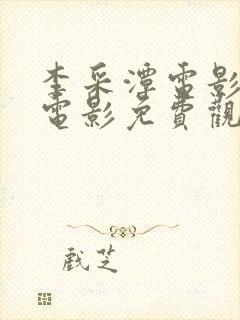 李采潭電影
電影免費觀
戲芝